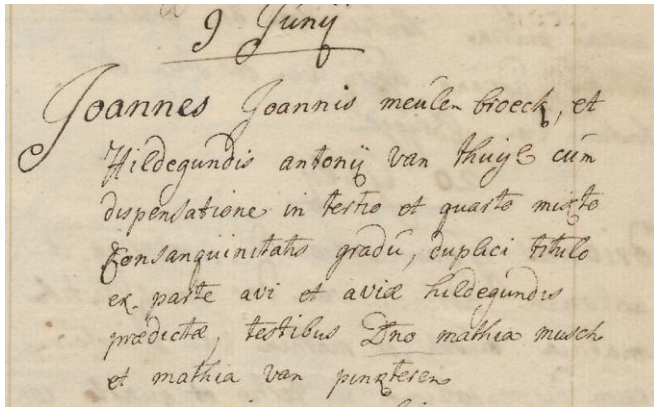 9 Junij
Joannes Joannis meulen broeck, et
Hildegundis antonij van thuijl cum
dispensatione in tertio et quarto mixto
Consanguinitatis gradu, duplici titulo
ex parte avi et aviæ hildegundis
prædictæ, testibus Dno mathia musch
et mathia van pinxteren